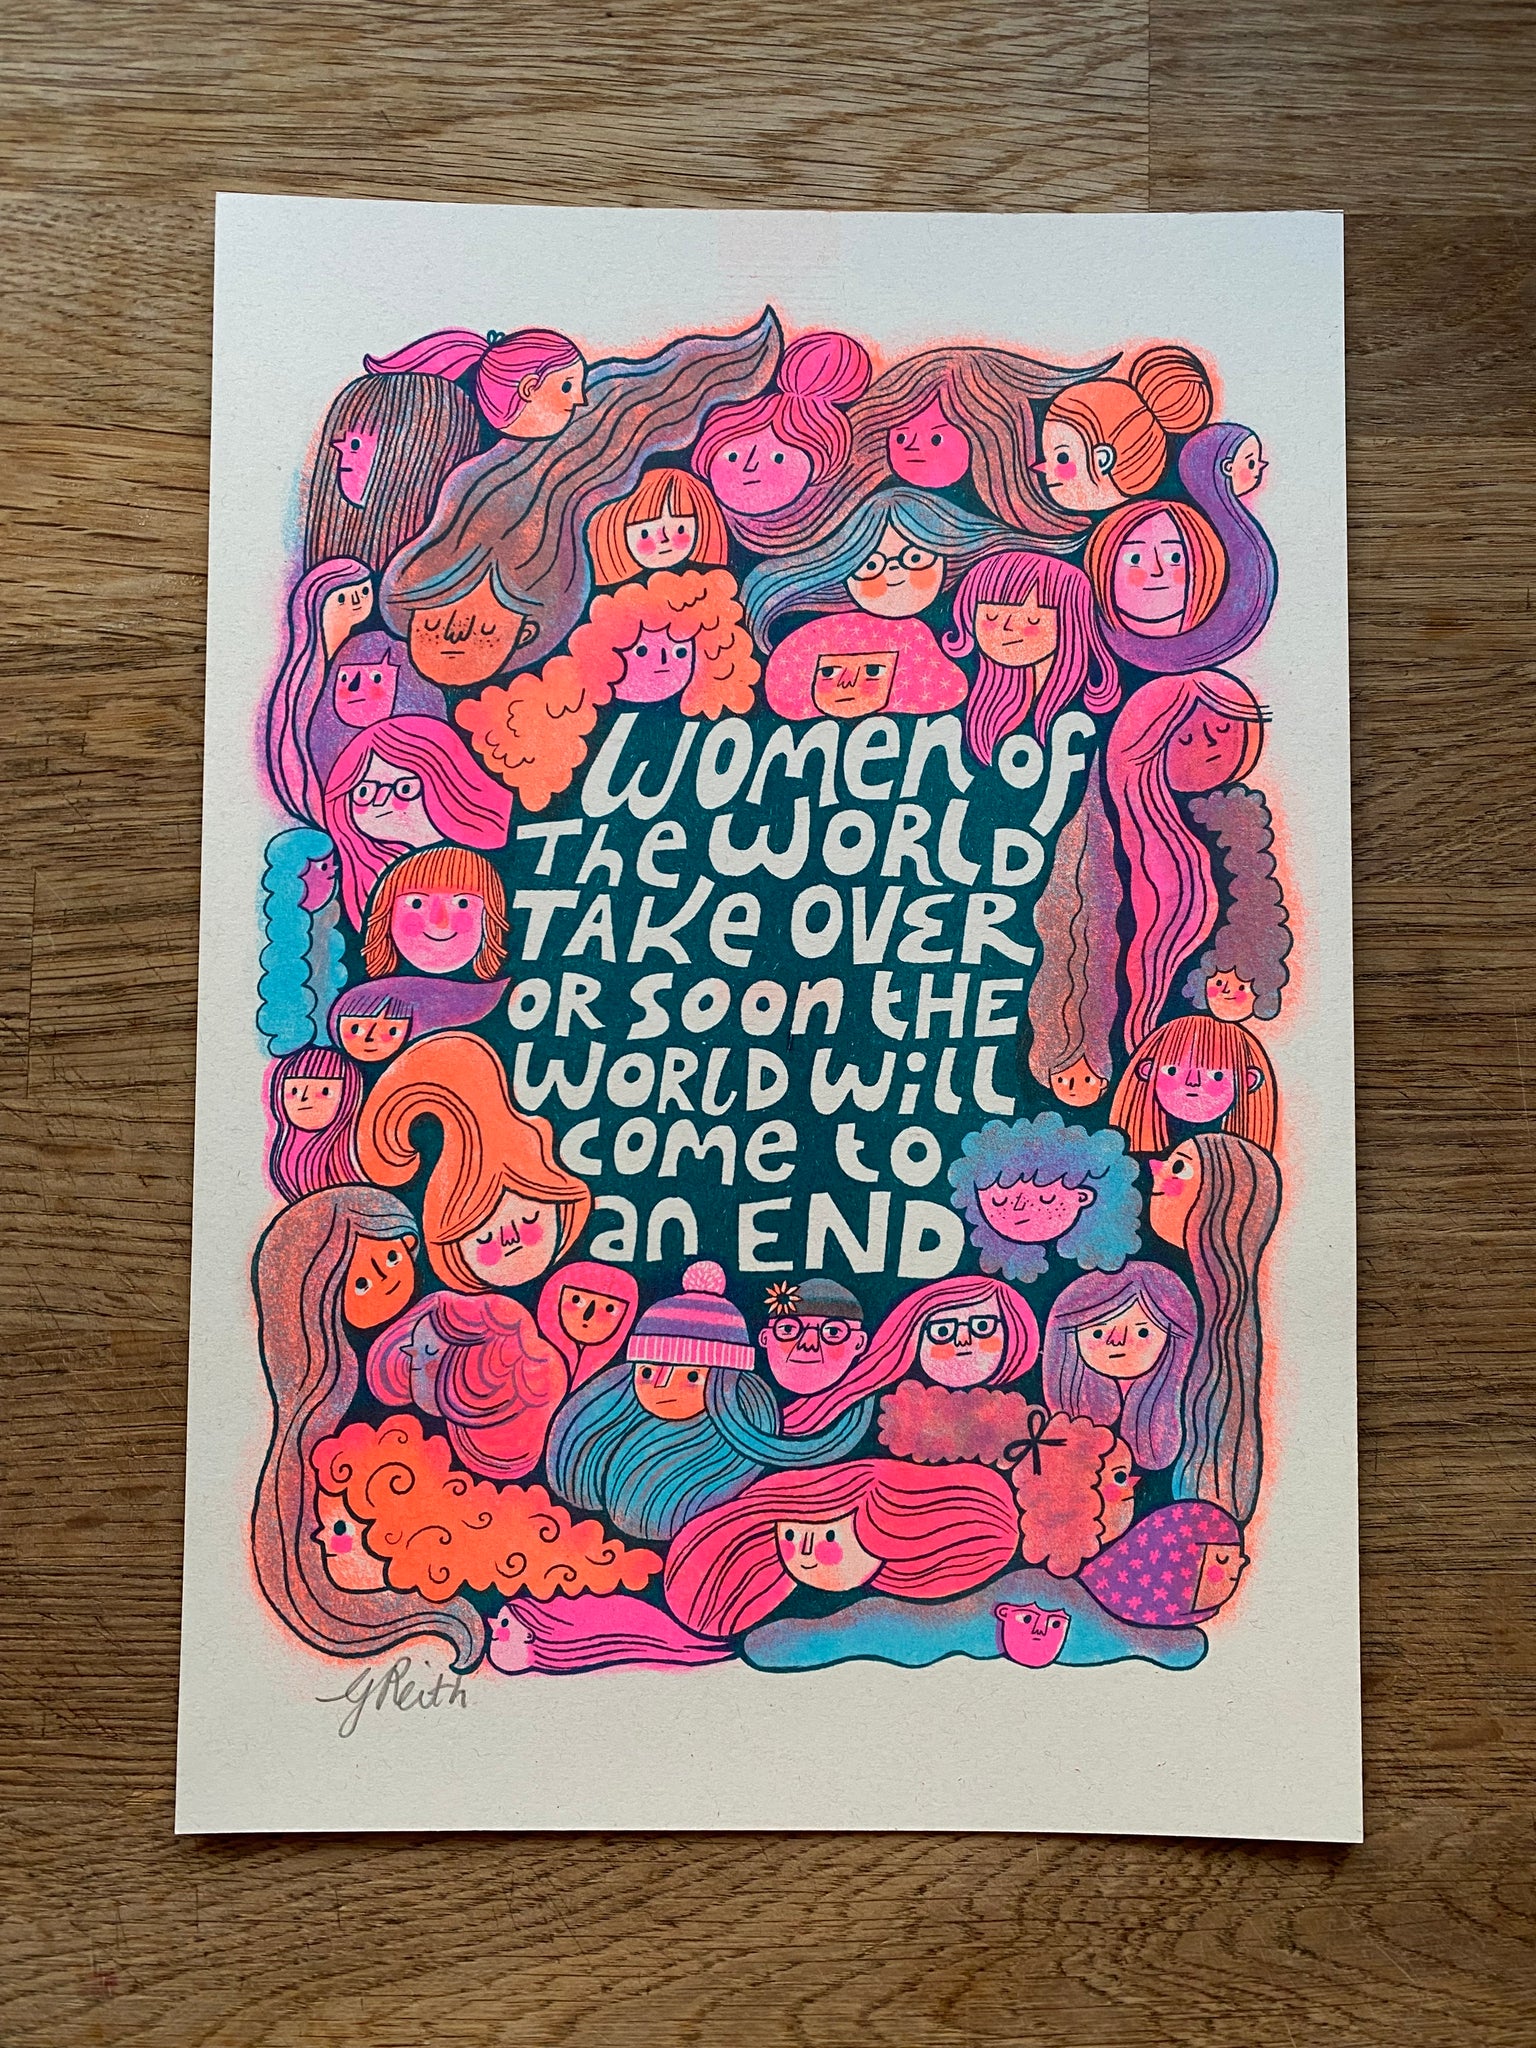 WOMEN OF
THE WORLD
TAKE OVER
OR SOON THE
WORLD WILL
COME TO
AN END
G Reith